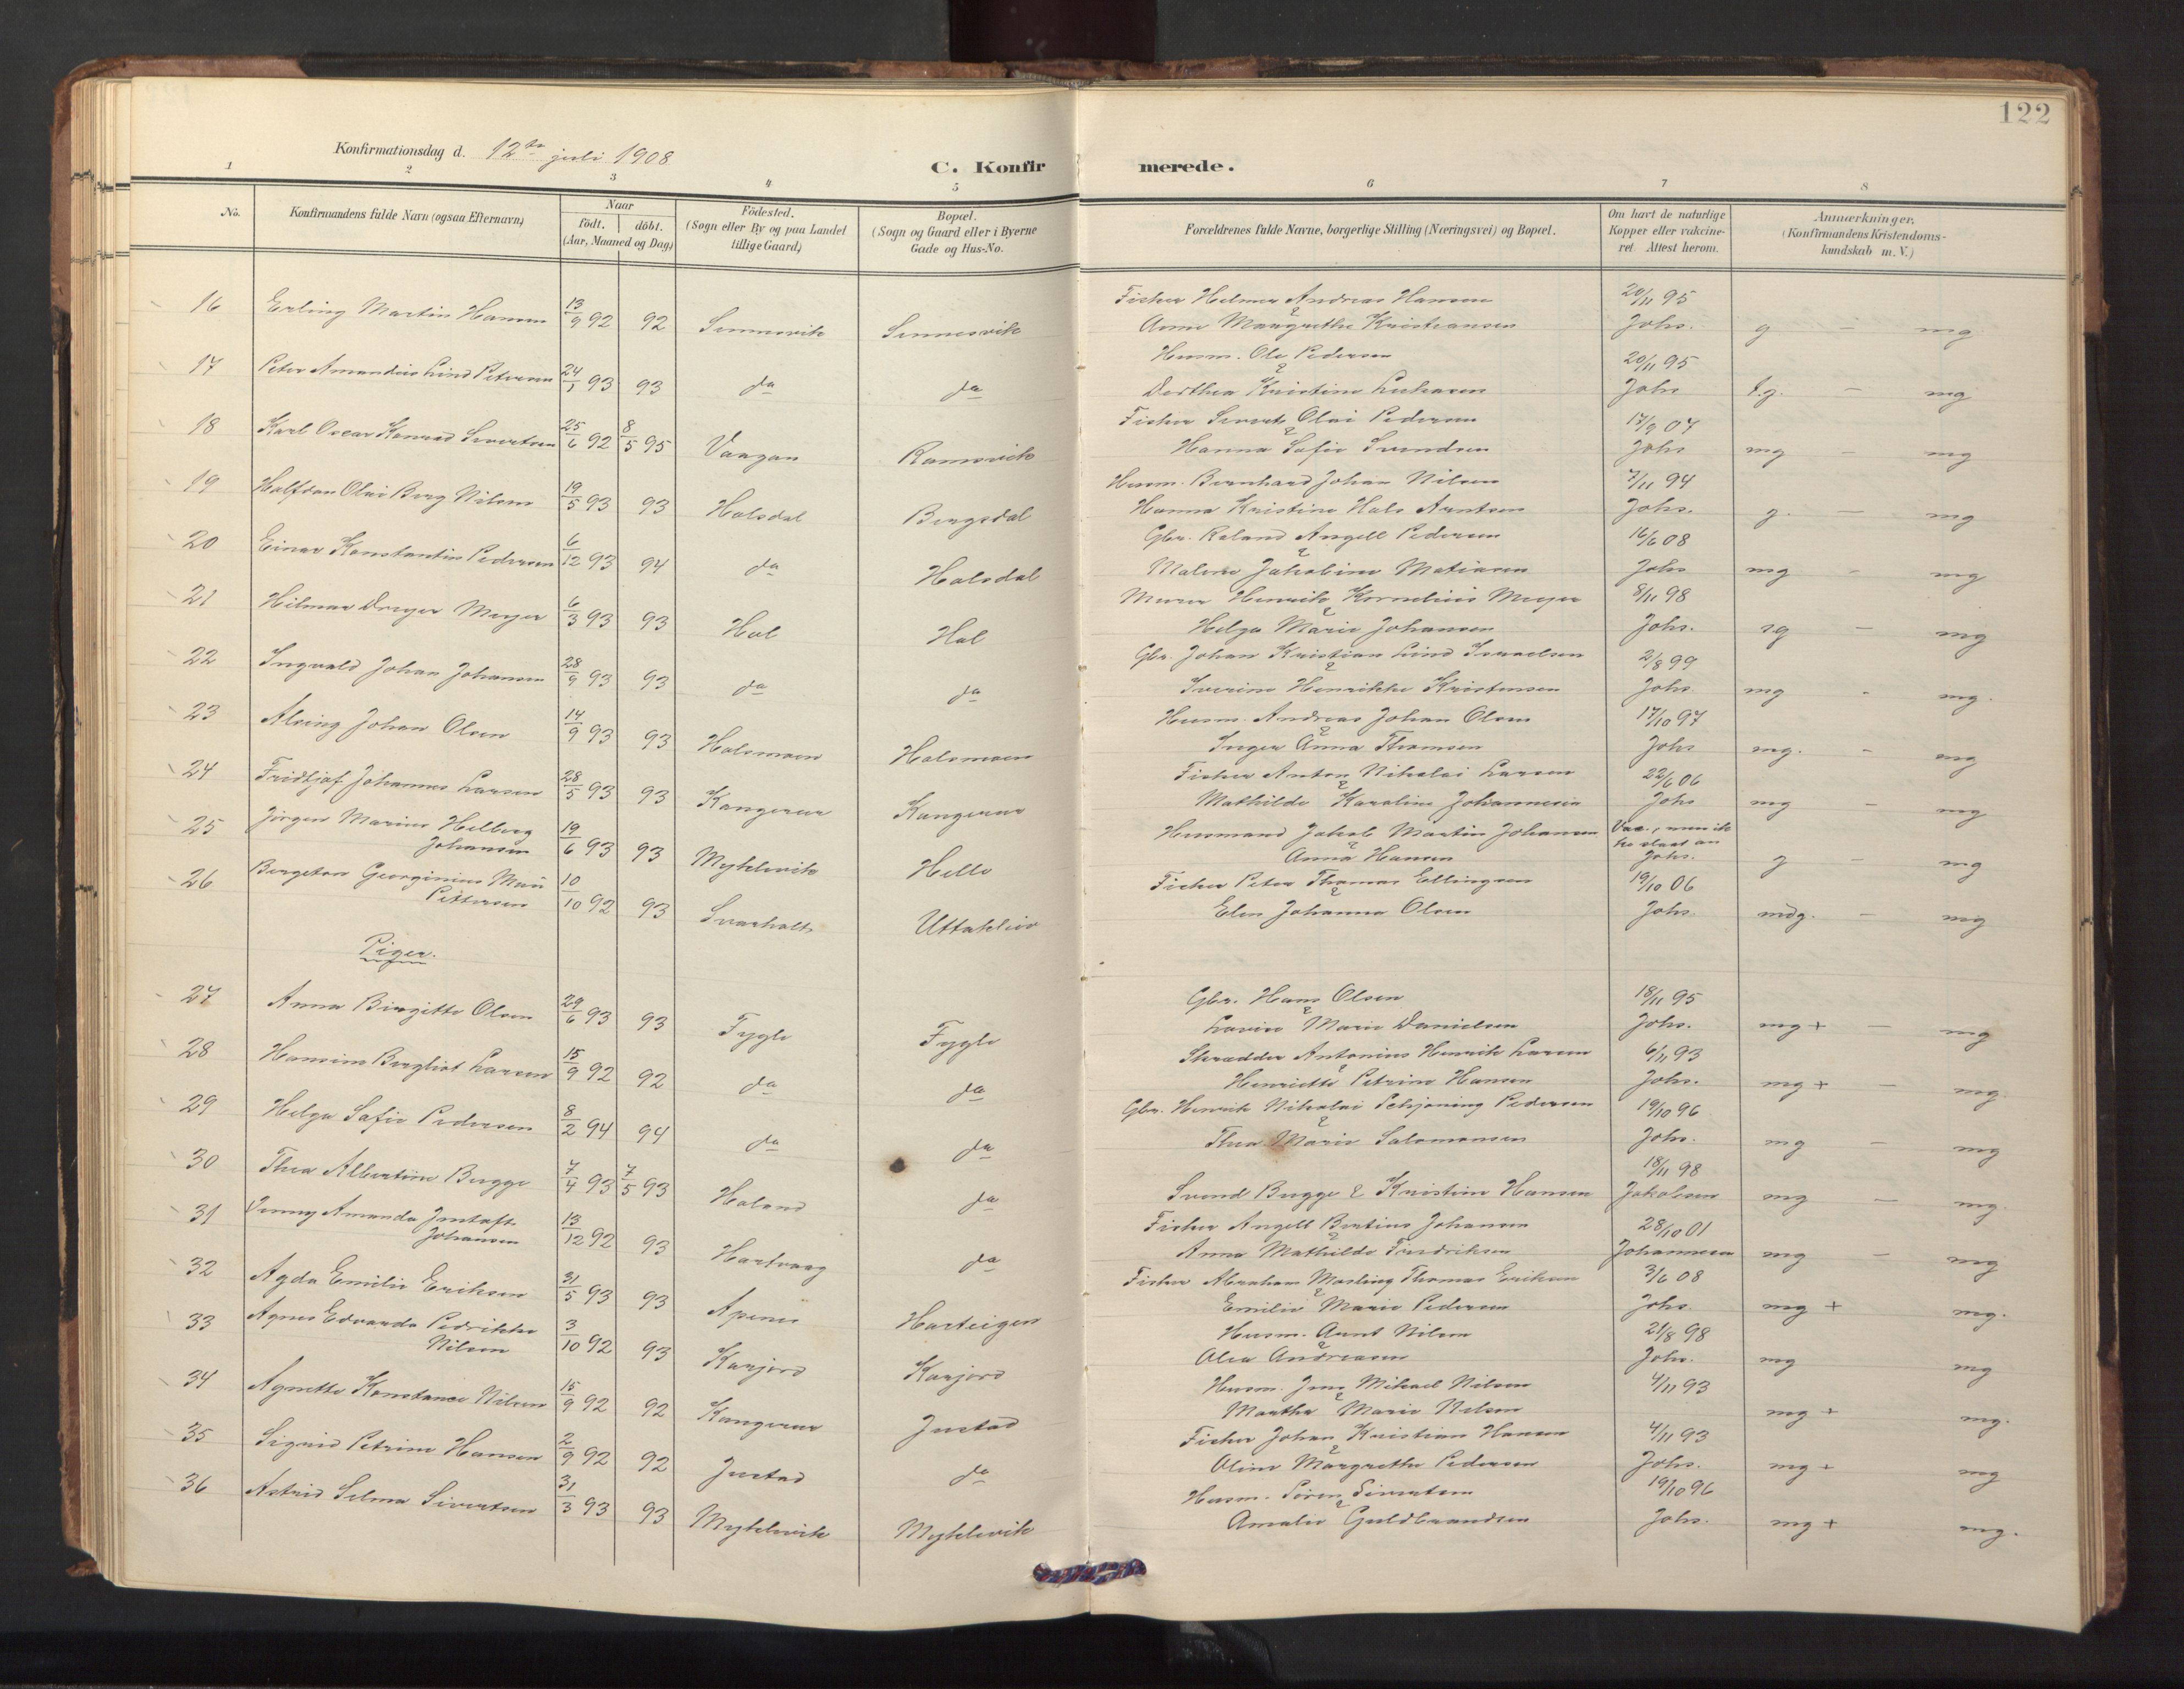 122
Konfirmationsdag d. 12te juli 1908
C. Konfirmerede.
1 2 3 4 5 6 7 8
No.
Konfirmandens fulde Navn (ogsaa Efternavn)
Naar
födt. döbt.
(Aar, Maaned og Dag)
Födested.
(Sogn eller By og paa Landet
tillige Gaard)
Bopæl.
(Sogn og Gaard eller i Byerne
Gade og Hus-No.
Forældrenes fulde Navne, borgerlige Stilling (Næringsvei) og Bopæl.
Om havt de naturlige
Kopper eller vakcine-
ret Attest herom.
Anmærkninger.
(Konfirmandens Kristendoms-
kundskab m. V.)
16 Erling Martin Hansen 13/9 92 92 Sennesvik Sennesvik Fisker Helmer Andreas Hansen 20/11 95
& Anne Margrethe Kristiansen Johs. g - mg
17 Peter Amandus Lind Petersen 24/1 93 93 da da Husm. Ole Pedersen 20/11 95
& Dorthea Kristine Lukasen Johs t.g. - mg
18 Karl Oscar Konrad Sivertsen 25/6 92 8/5 95 Vaagan Ramsvik Fisker Sivert Olai Pedersen 17/9 07
& Hanna Sofie Svendsen Johs mg - mg
19 Halfdan Olai Berg Nilsen 19/5 93 93 Holsdal Bergsdal Husm. Bernhard Johan Nilsen 7/11 94
Hanna Kristine Hals Arntsen Johs. g. - mg
20 Einar Konstantin Pedersen 6/12 93 94 da Holsdal Gbr. Roland Angell Pedersen 16/6 08
& Malene Jakobine Matiasen Johs mg - mg
21 Hilmar Dreyer Meyer 6/3 93 93 Hol Hol Murer Henrik Kornelius Meyer 8/11 98
& Helga Marie Johansen Johs. sg - mg
22 Ingvald Johan Johansen 28/9 93 93 da da Gbr. Johan Kristian Lind Israelsen 2/8 99
& Iverine Henrikke Kristensen Johs. mg - mg.
23 Alving Johan Olsen 14/9 93 93 Holsmoen Holsmoen Husm. Andreas Johan Olsen 17/10 97
& Inger Anna Thomsen Johs mg. - mg
24 Fridtjof Johannes Larsen 28/5 93 93 Kangerur Kangerur Fisker Anton Nikolai Larsen 22/6 06
& Mathilde Karoline Johannesen Johs mg - mg
25 Jörgen Marius Helberg
Johansen 19/6 93 93 Myklevik Helle Husmand Jakob Martin Johansen Vac., men ik
ke slaat an
& Anna Hansen Johs. g - mg
26 Bergeton Georginius
Pettersen 10/10 92 93 Svarholt Uttakleiv Fisker Peter Thomas Ellingsen 19/10 06
& Elen Johanna Olsen Johs. mdg. - mg
Piger.
27 Anna Birgitte Olsen 29/6 93 93 Fygle Fygle Gbr. Hans Olsen 18/11 95
& Lavine Marie Danielsen Johs. mg + - mg
28 Hansine Bergliot Larsen 15/9 92 92 da da Skrædder Antonius Henrik Larsen 6/11 93
& Henriette Petrine Hansen Johs. mg + - mg.
29 Helga Sofie Pedersen 8/2 94 94 da da Gbr. Henrik Nikolai Schjöning Pedersen 19/10 96
& Thea Marie Salomonsen Johs. mg - mg
30 Thea Albertine Bugge 7/4 93 7/5 93 Holand da Svend Bugge & Kristine Hansen 18/11 98
Jakobsen mg - mg.
31 Jenny Amanda
Johansen 13/12 92 93 Hartvaag da Fisker Angell Bertius Johansen 28/10 01
& Anna Mathilde Fredriksen Johannesen mg - mg
32 Agda Emilie Eriksen 31/5 93 93 Apenes Harteigen Fisker Abraham Thomas Eriksen 3/6 08
Emilie Marie Pedersen Johs. mg + mg.
33 Agnes Edvarda Pedrikke
Nilsen 3/10 92 93 Karjord Karjord Husm. Arnt Nilsen 21/8 98
& Olea Andreasen Johs. mg mg
34 Agnethe Konstance Nilsen 15/9 92 92 Kangerur Justad Husm. Jens Mikael Nilsen 4/11 93
& Marthe Marie Nilsen mg + mg.
35 Sigrid Petrine Hansen 2/9 92 92 Justad da Fisker Johan Kristian Hansen 4/11 93
& Oline Margrethe Pedersen Johs. mg + mg
36 Astrid Selma Sivertsen 31/3 93 93 Myklevik Myklevik Husm. Sören Sivertsen 19/10 96
& Amalie Guldbrandsen Johs. mg + mg.